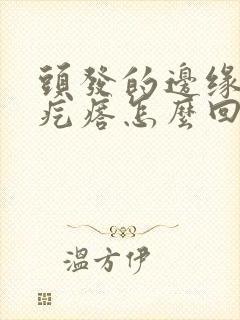 頭發的邊緣
疙瘩怎麼回
溫方伊